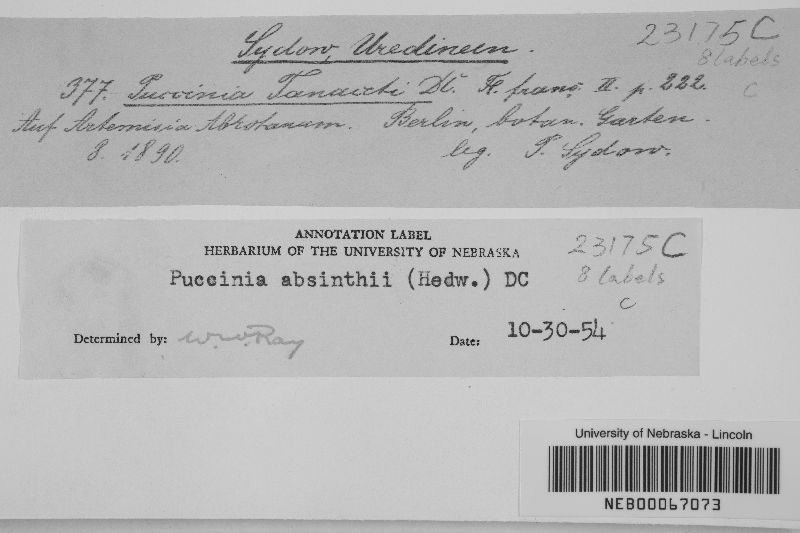 Sydow, Uredineen.
23175 C
8 labels
C
377. Puccinia Tanaceti DC. Fl. franç. II. p. 222.
Auf Artemisia Abrotanum. Berlin, botan. Garten.
8. 1890. leg. P. Sydow.
ANNOTATION LABEL
HERBARIUM OF THE UNIVERSITY OF NEBRASKA
23175 C
8 labels
C
Puccinia absinthii (Hedw.) DC
Determined by: W.W. Ray Date: 10-30-54
University of Nebraska - Lincoln
NEB00067073